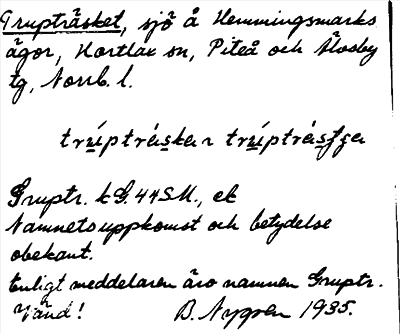 Gruptråsket, sjö å Hemmingsmarks
ägor, Hortlax sn, Piteå och Älvsby
tg, Norrb. l.
trúptráska ı trúptrásʃʒa
Gruptr. kG. 44 S.V., ek
Namnets uppkomst och betydelse
obekant.
Enligt meddelaren äro namnen Gruptr.
Vänd! B. Nygren 1935.